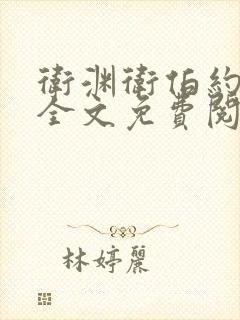 衛渊衛伯約
全文免費閱
林婷麗